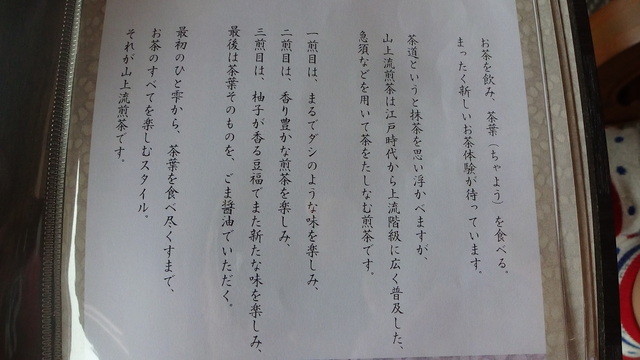 お茶を飲み、茶葉（ちゃよう）を食べる。
まったく新しいお茶体験が待っています。
茶道というと抹茶を思い浮かべますが、
山上流煎茶は江戸時代から上流階級に広く普及した、
急須などを用いて茶をたしなむ煎茶です。
一煎目は、まるでダシのような味を楽しみ、
二煎目は、香り豊かな煎茶を楽しみ、
三煎目は、柚子が香る豆福でまた新たな味を楽しみ、
最後は茶葉そのものを、ごま醤油でいただく。
最初のひと雫から、茶葉を食べ尽くすまで、
お茶のすべてを楽しむスタイル。
それが山上流煎茶です。